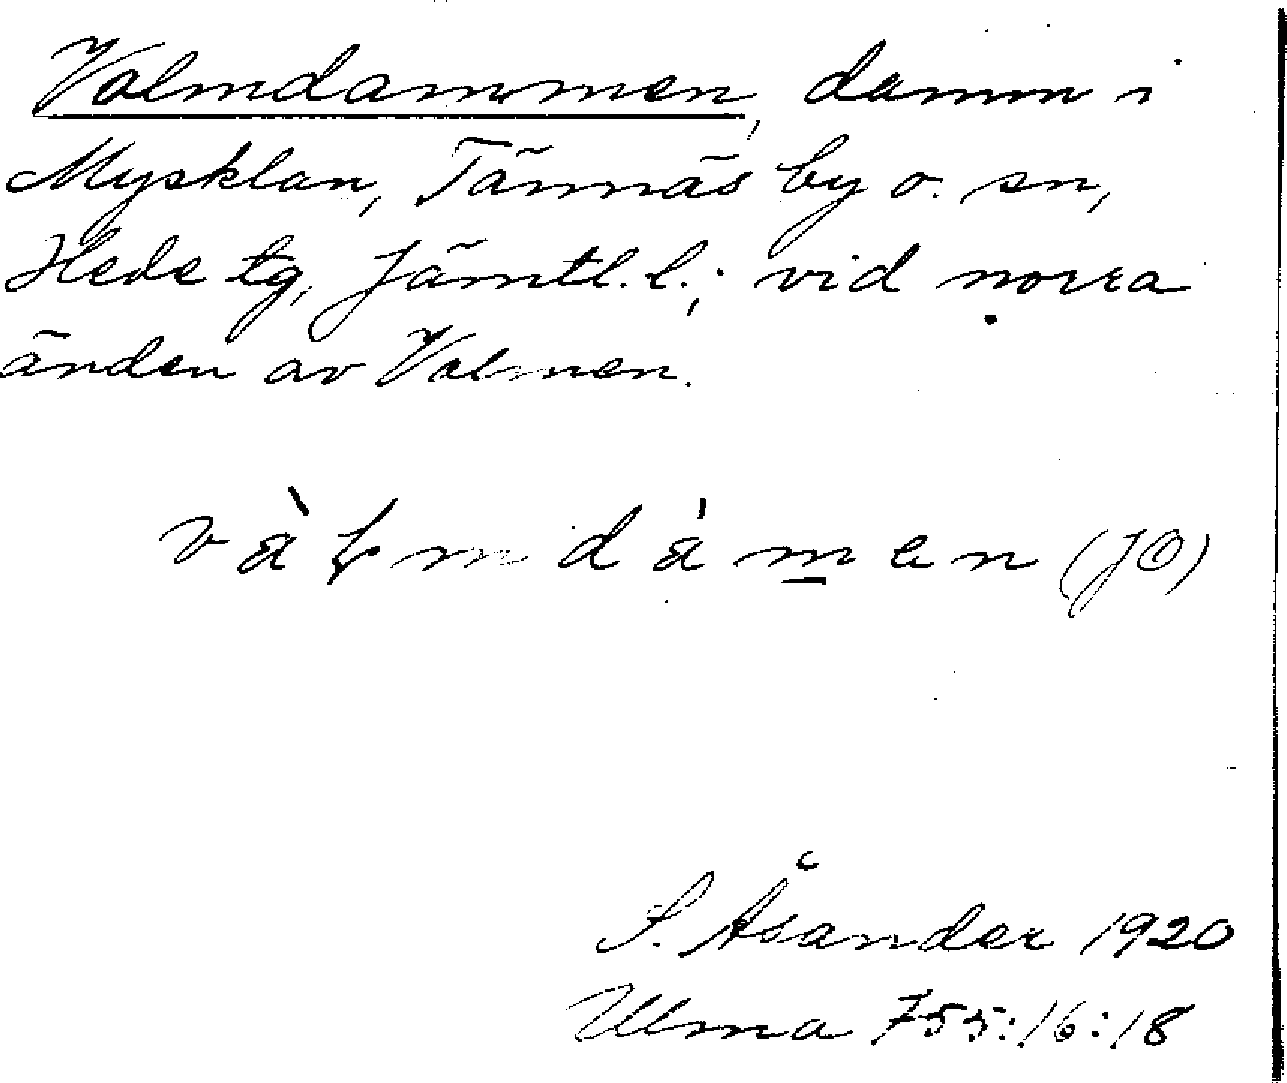 Valmdammen, damm i
Mysklan, Tännäs by o. sn,
Hede tg, Jämtl. l.; vid norra
änden av Valmen.
vàḷmdám̲en (JÖ)
S. Åsander 1920
Ulma 755:16:18